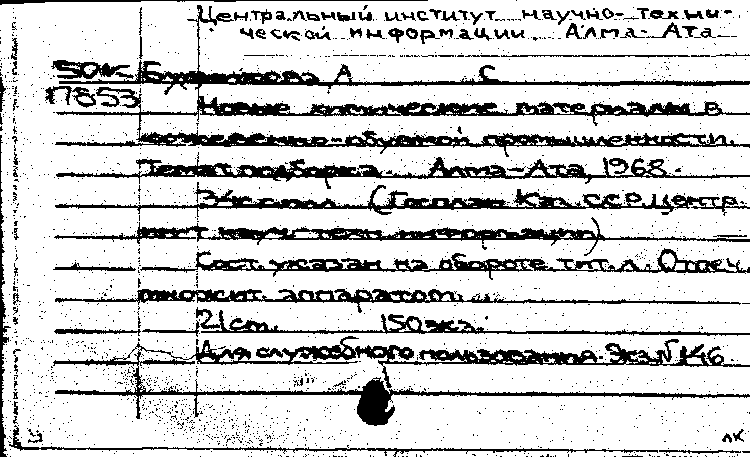 Центральный институт научно-техни-
ческой информации. Алма-Ата
50к А С
17853 Новые химические материалы в
кожевенно-обувной промышленности.
Темат. подборка. Алма-Ата, 1968.
(Госплан Каз. ССР. Центр.
инт науч. техн. информации)
Сост. указан на обороте тит. л. Отпеч.
множит. аппаратом.
21cm. 150экз.
Для служебного пользования Экз. № 146
лк